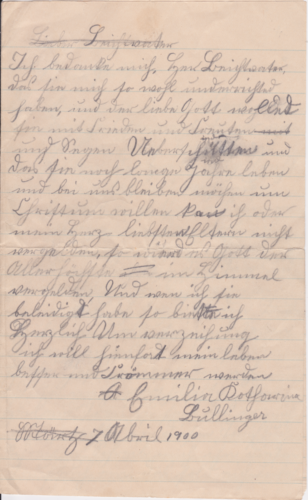 Lieber Beichtvater
Ich bedanke mich, Her Beichtvater,
das sie mich so wohl underrichted
haben, und der liebe Gott wolled
sie mit Frieden und Freuden mit
und Segen Ueberschütten und
Das sie noch lange Jahre leben
und bei uns bleiben möchen um
Christtum willen kan ich oder
mein Herz liebsten Eltern nicht
so Gott der
Allerhöchste im Himmel
vergelden. Und wen ich sie
beleidigt habe so bitte ich
Herzlich Um verzeihung
ich will hienfort mein leben
besser und Frommer werden
Emilia Katharina
Bullinger
7 Abril 1900